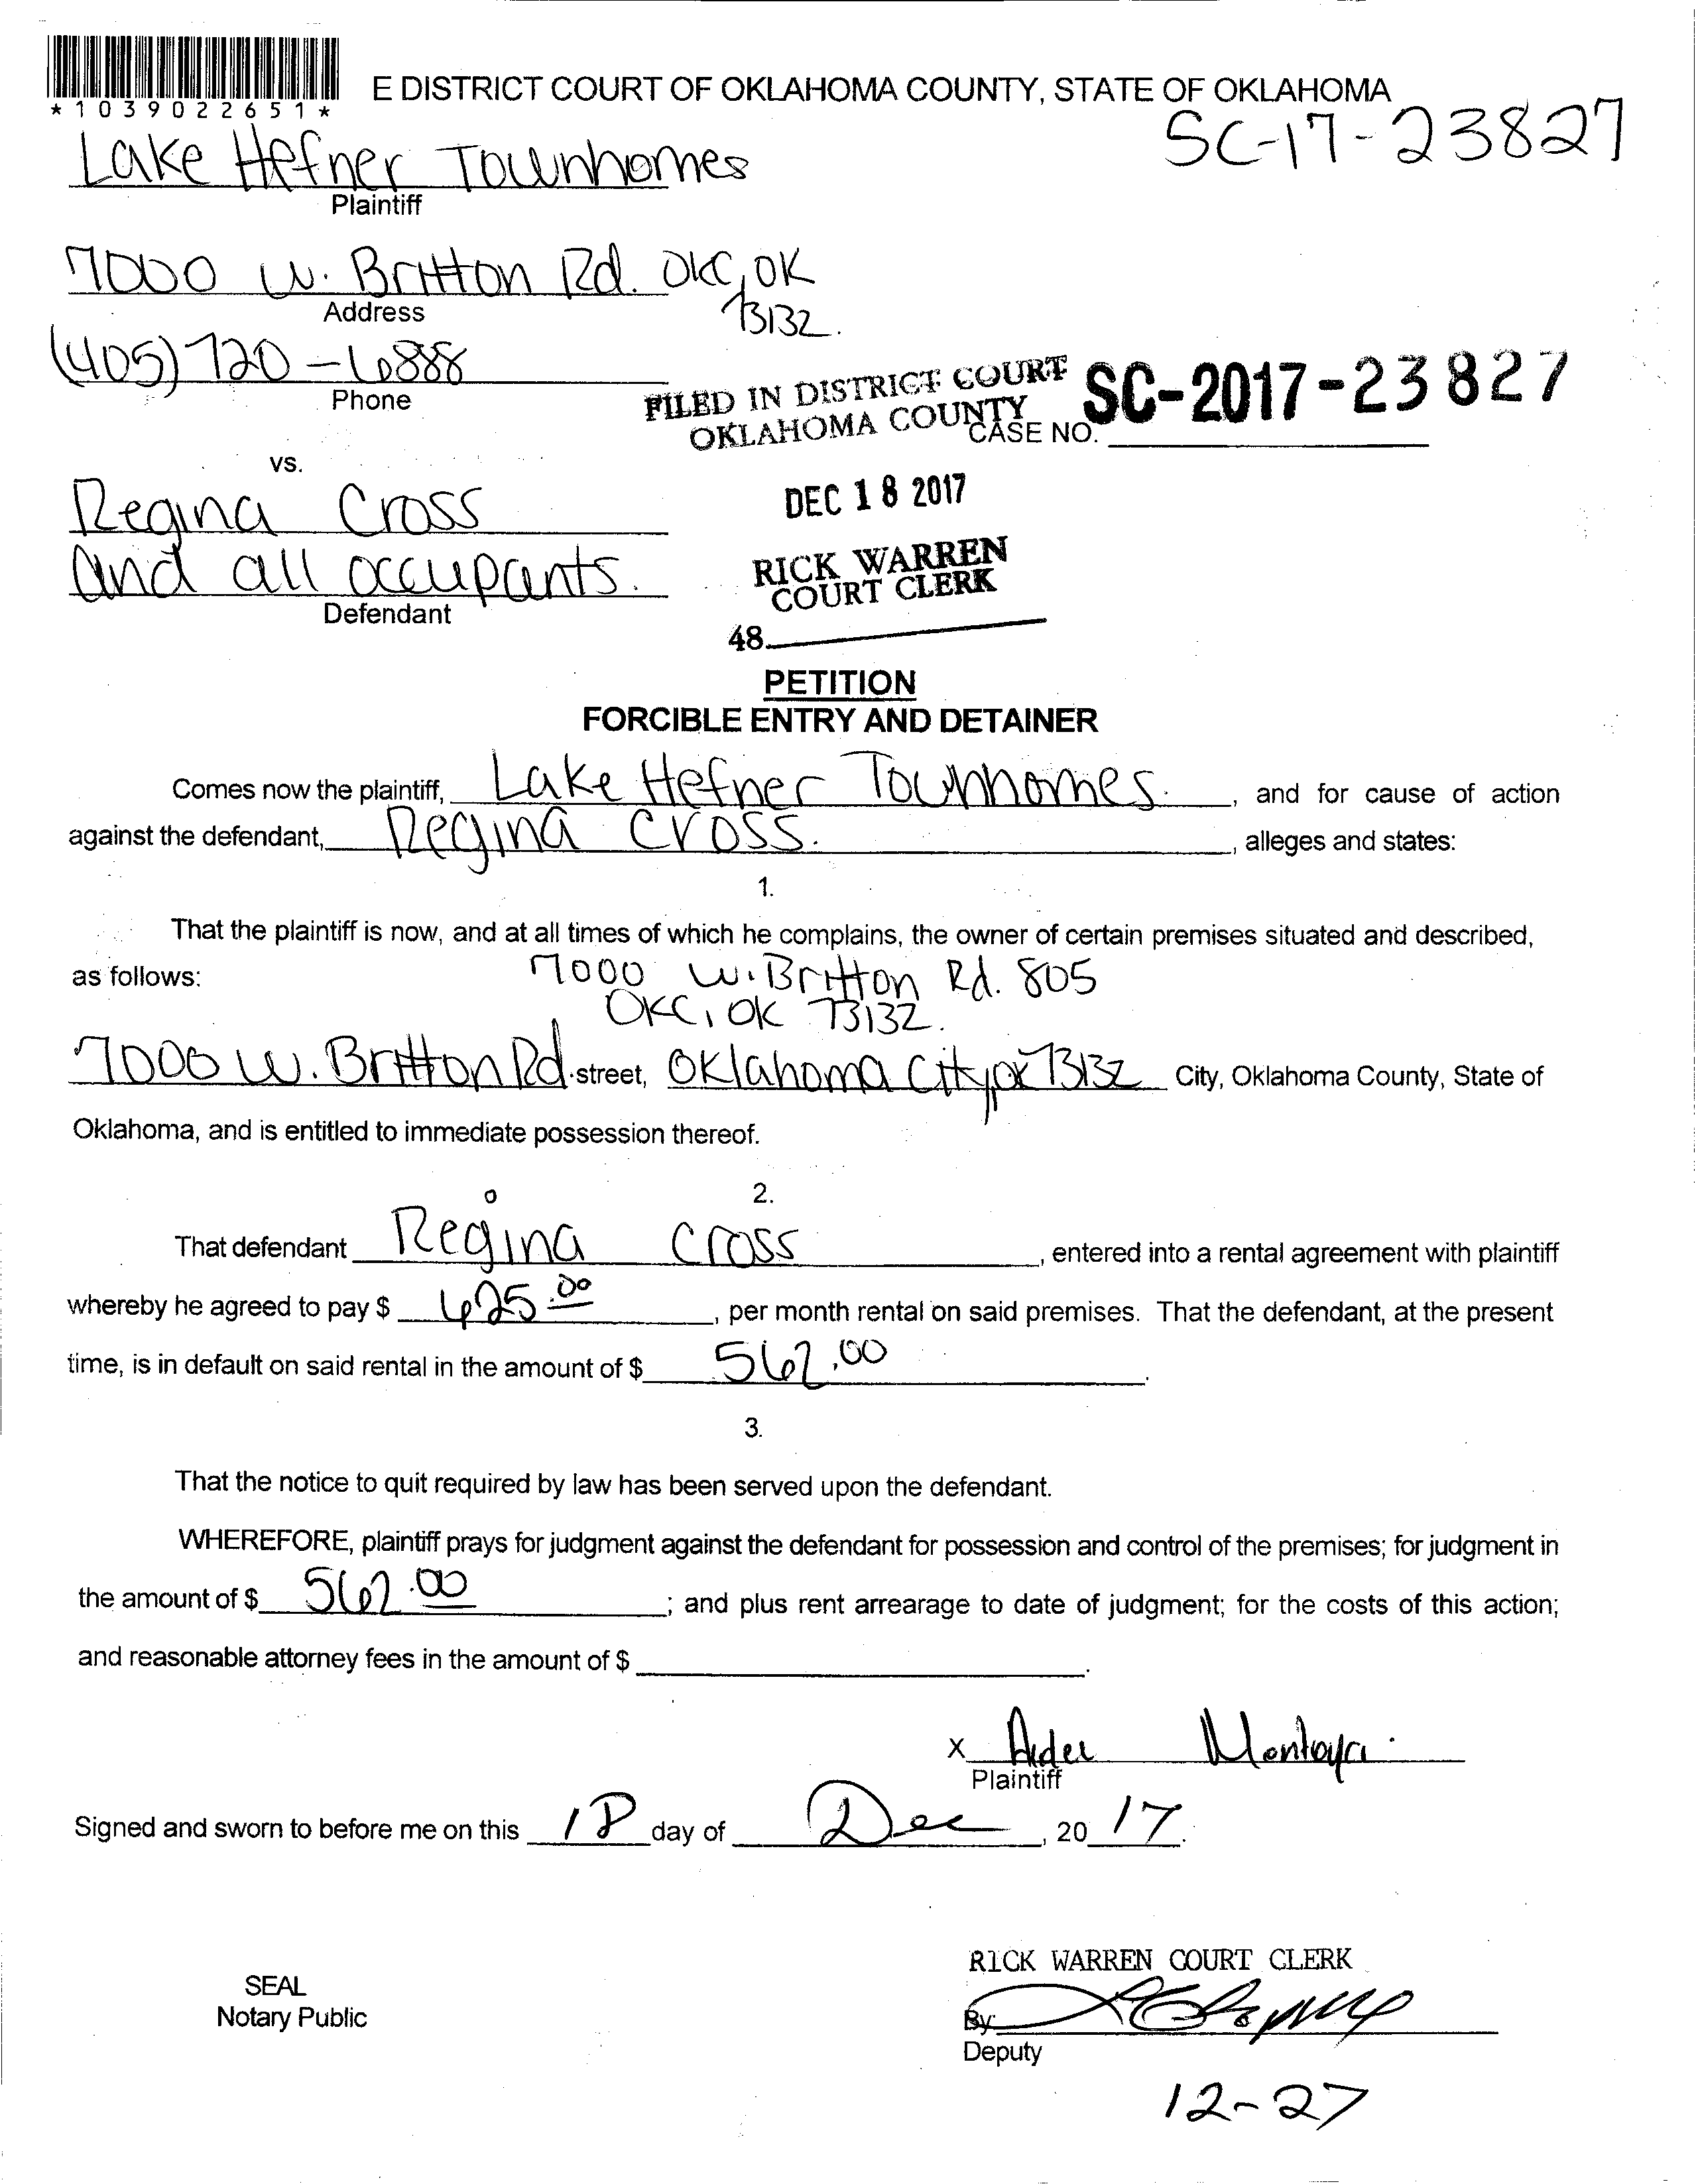 *1039022651*
E DISTRICT COURT OF OKLAHOMA COUNTY, STATE OF OKLAHOMA
SC-17-23827
Lake Hefner Townhomes
Plaintiff
7000 W. Britton Rd. OKC, OK
73132.
Address
(405) 720-6888
Phone
FILED IN DISTRICT COURT
OKLAHOMA COUNTY
CASE NO. SC-2017-23827
vs.
DEC 18 2017
Regina Cross
and all occupants.
Defendant
RICK WARREN
COURT CLERK
48
PETITION
FORCIBLE ENTRY AND DETAINER
Comes now the plaintiff, Lake Hefner Townhomes. , and for cause of action
against the defendant, Regina Cross. , alleges and states:
1.
That the plaintiff is now, and at all times of which he complains, the owner of certain premises situated and described,
as follows: 7000 W. Britton Rd. 805
OKC, OK 73132.
7000 W. Britton Rd. street, Oklahoma City, OK 73132 City, Oklahoma County, State of
Oklahoma, and is entitled to immediate possession thereof.
2.
That defendant Regina Cross , entered into a rental agreement with plaintiff
whereby he agreed to pay $ 625.00 , per month rental on said premises. That the defendant, at the present
time, is in default on said rental in the amount of $ 562.00 .
3.
That the notice to quit required by law has been served upon the defendant.
WHEREFORE, plaintiff prays for judgment against the defendant for possession and control of the premises; for judgment in
the amount of $ 562.00 ; and plus rent arrearage to date of judgment; for the costs of this action;
and reasonable attorney fees in the amount of $ .
X Montoya.
Plaintiff
Signed and sworn to before me on this 18 day of Dec , 20 17.
RICK WARREN COURT CLERK
SEAL
Notary Public
By:
Deputy
12-27